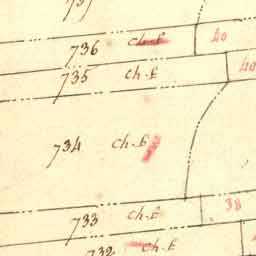 737
736 ch. E 40
735 ch. E 40
734 ch. E
733 ch. E 38
732 ch. E